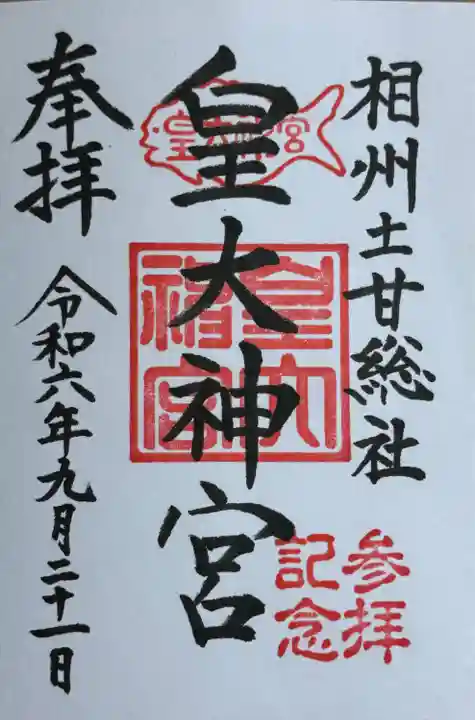 相州土甘総社
皇大神宮
皇大神宮
皇大神宮
参拝
記念
奉拝
令和六年九月二十一日